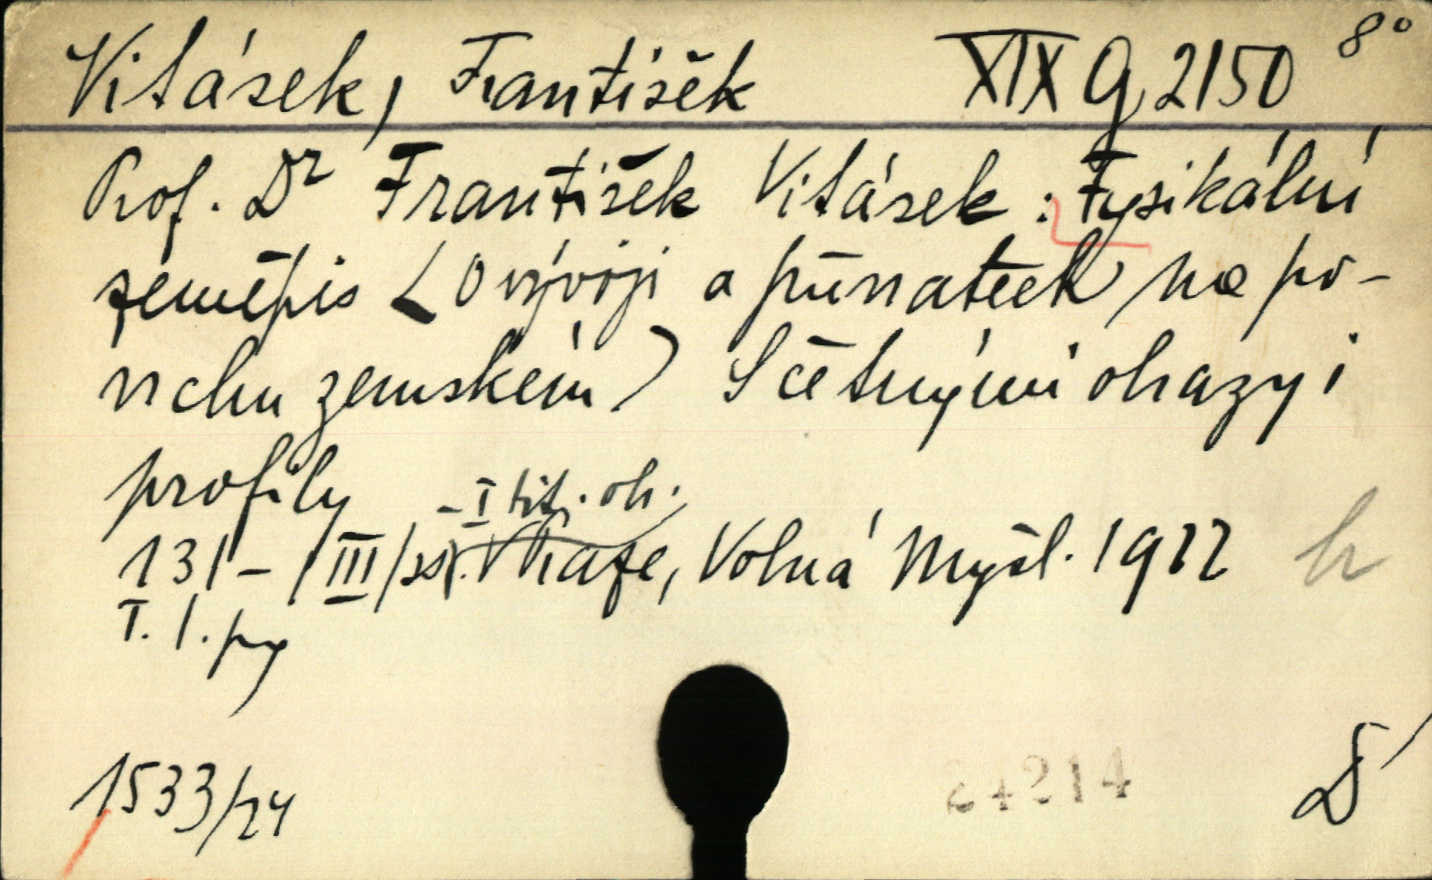 Vitásek, František XIX G 2150 8°
Prof. Dr František Vitásek: Fysikální
zeměpis (O vývoji a pův na po-
vrchu zemském) S četnými obrazy i
profily
- I tit. ob.
131 - /III/ss. Praze, Volná Myšl. 1922
I. 1. py
1533/24
24214